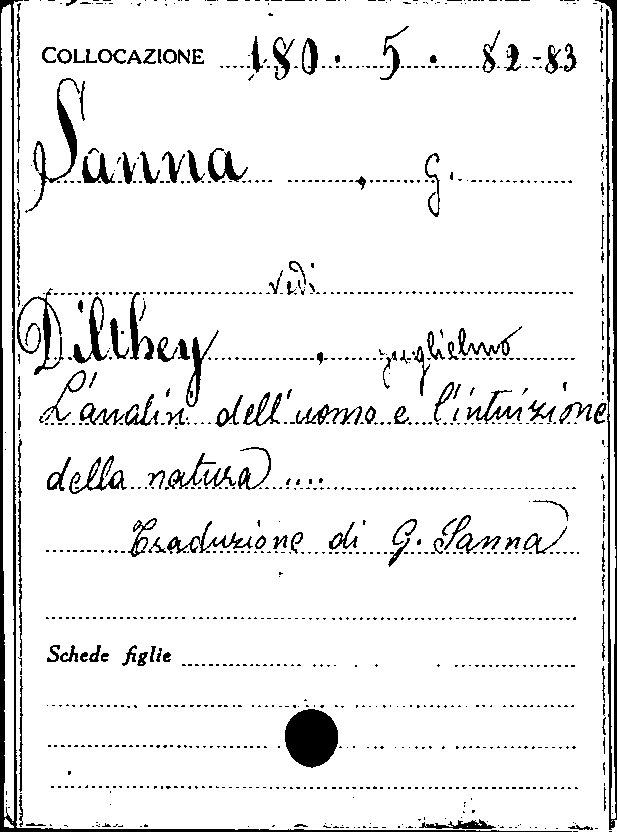 COLLOCAZIONE 180. 5. 82-83
Sanna, G.
vedi
Dilthey, guglielmo
L'analisi dell'uomo e l'intuizione
della natura ....
Traduzione di G. Sanna
Schede figlie